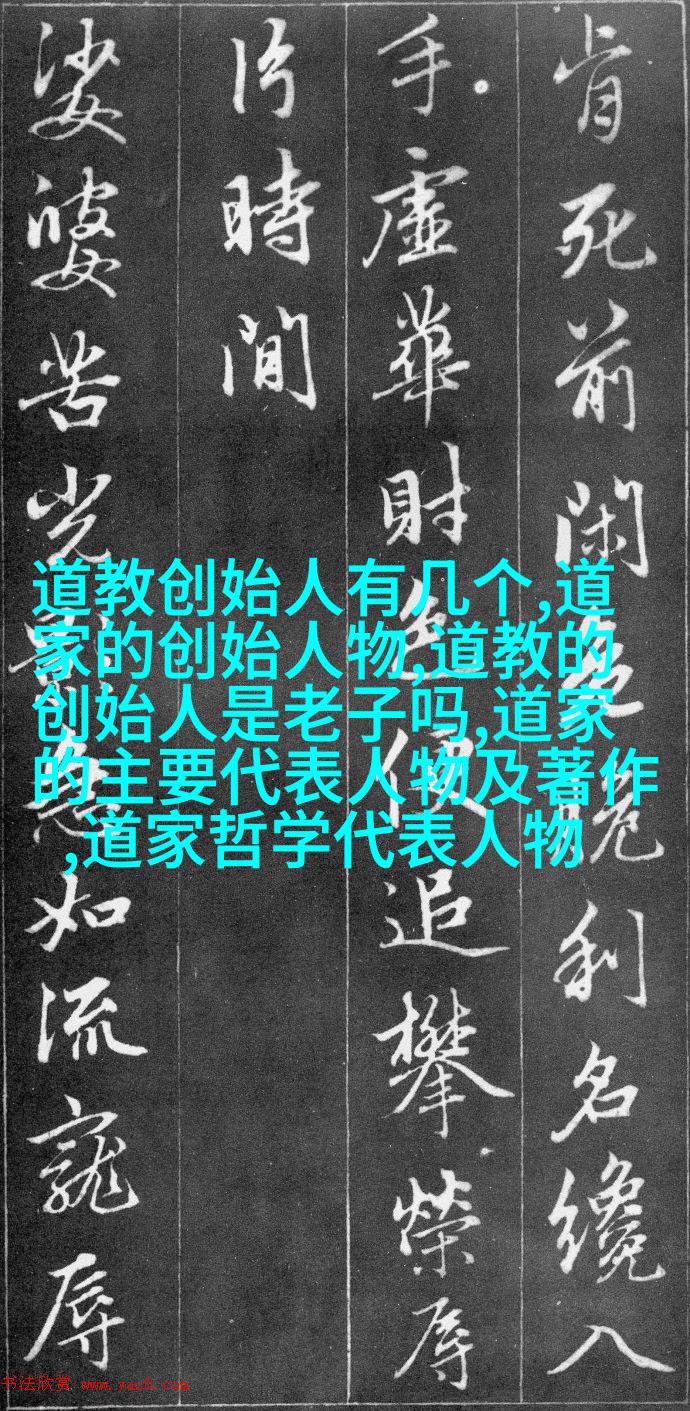 肯死前閑利名纔入
手虛華財色便追攀榮辱
片時間
娑婆苦光如流寵辱
道教创始人有几个,道
家的创始人物,道教的
创始人是老子吗,道家
的主要代表人物及著作
,道家哲学代表人物
书法欣赏 www.yac8.com